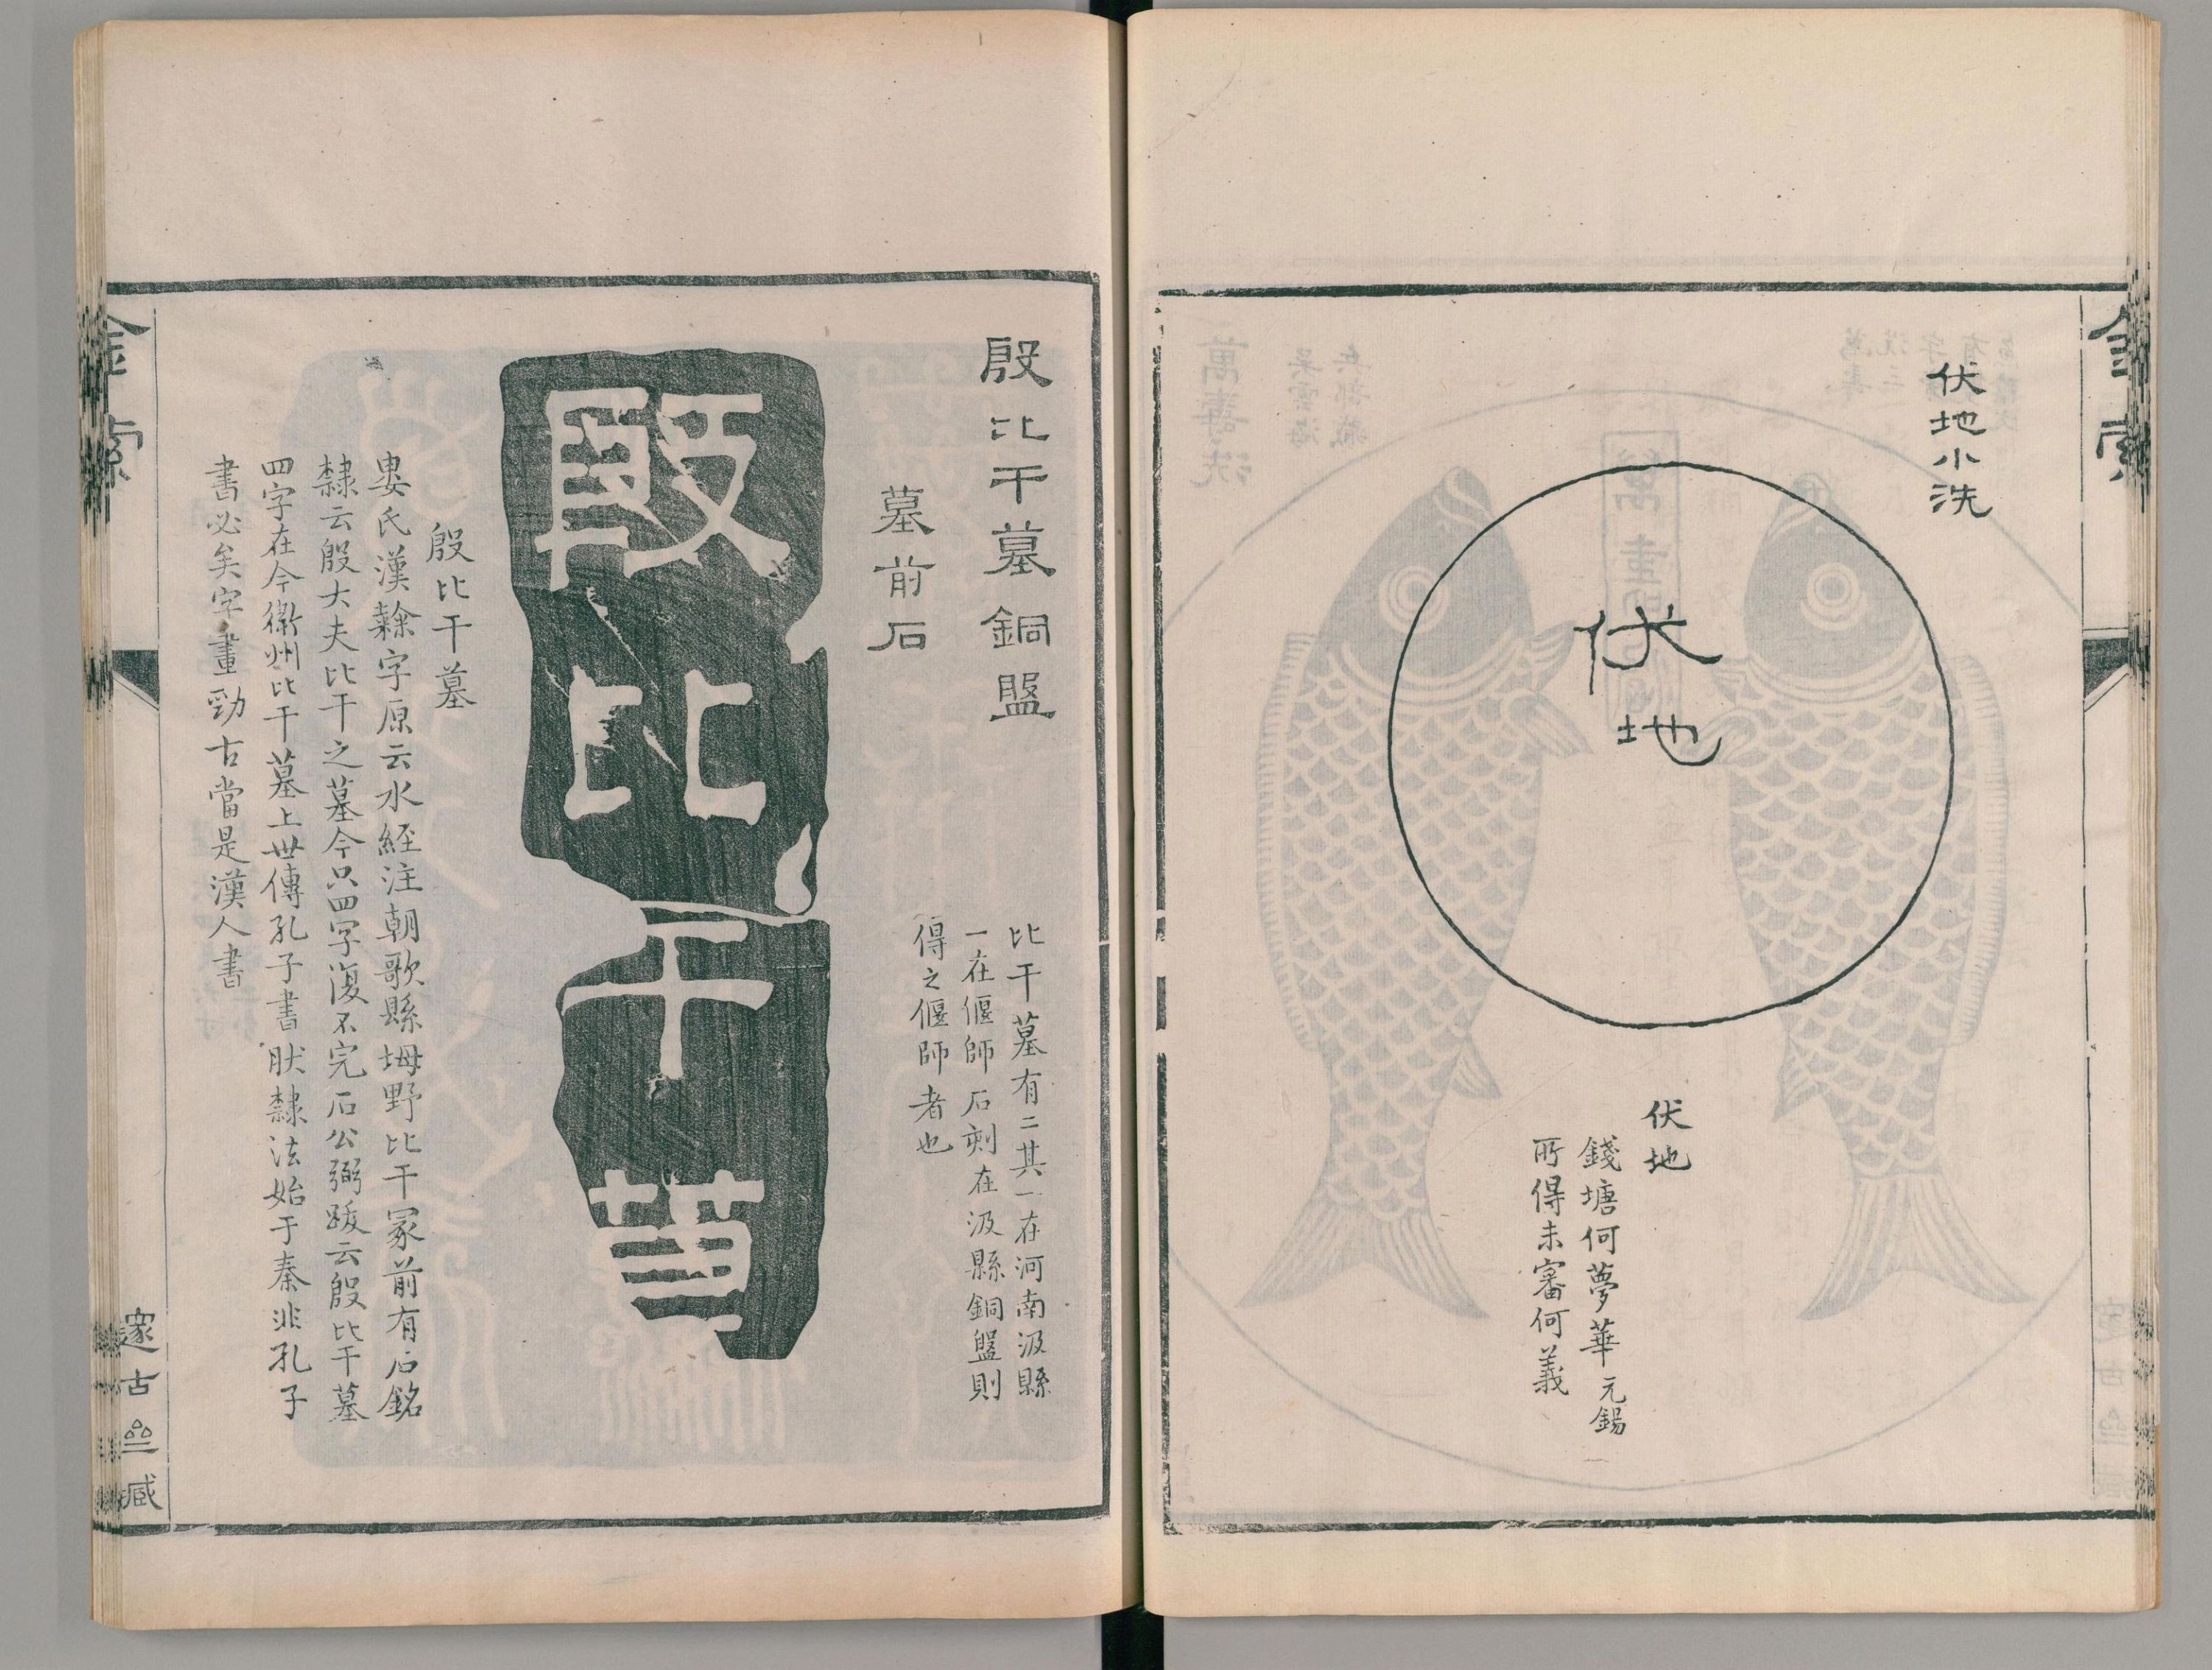 金索
伏地小洗
伏
地
伏地
錢塘何夢華元錫
所得未審何義
殷比干墓銅盤
比干墓有二其一在河南汲縣
一在偃師石刻在汲縣銅盤則
得之偃師者也
墓前石
殷
比
干
墓
殷比干墓
婁氏漢隸字原云水經注朝歌縣坶野比干冢前有石銘
隸云殷大夫比干之墓今只四字復不完石公弼跋云殷比干墓
四字在今衞州比干墓上世傳孔子書肰隸法始于秦非孔子
書必矣字畫勁古當是漢人書
金索
邃古亝臧